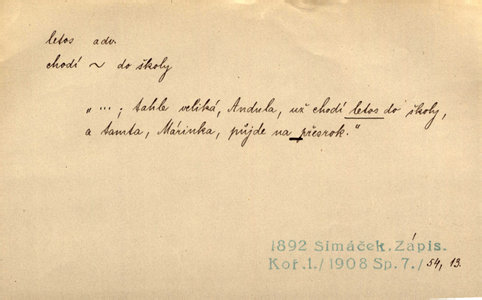 letos adv.
chodí ~ do školy
„ ···; tahle veliká, Andula, už chodí letos do školy,
a tamta, Márinka, půjde na přesrok."
1892 Simáček. Zápis.
Koř.1./1908 Sp.7./54, 13.